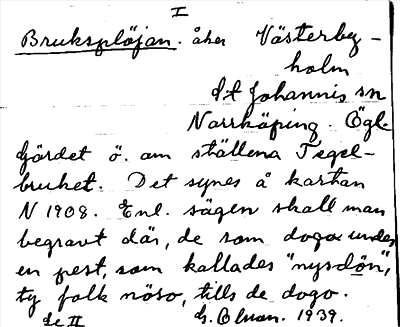 I
Bruksplöjan. åker Västerby-
holm
S:t Johannis sn
Norrköping. Ögl
Gärdet ö. om ställena Tegel-
bruket. Det synes å kartan
N 1908. Enl. sägen skall man
begravt där, de som dogo under
en pest, som kallades "nysdön",
ty folk nöso, tills de dogo.
Se II G. Olson. 1939.